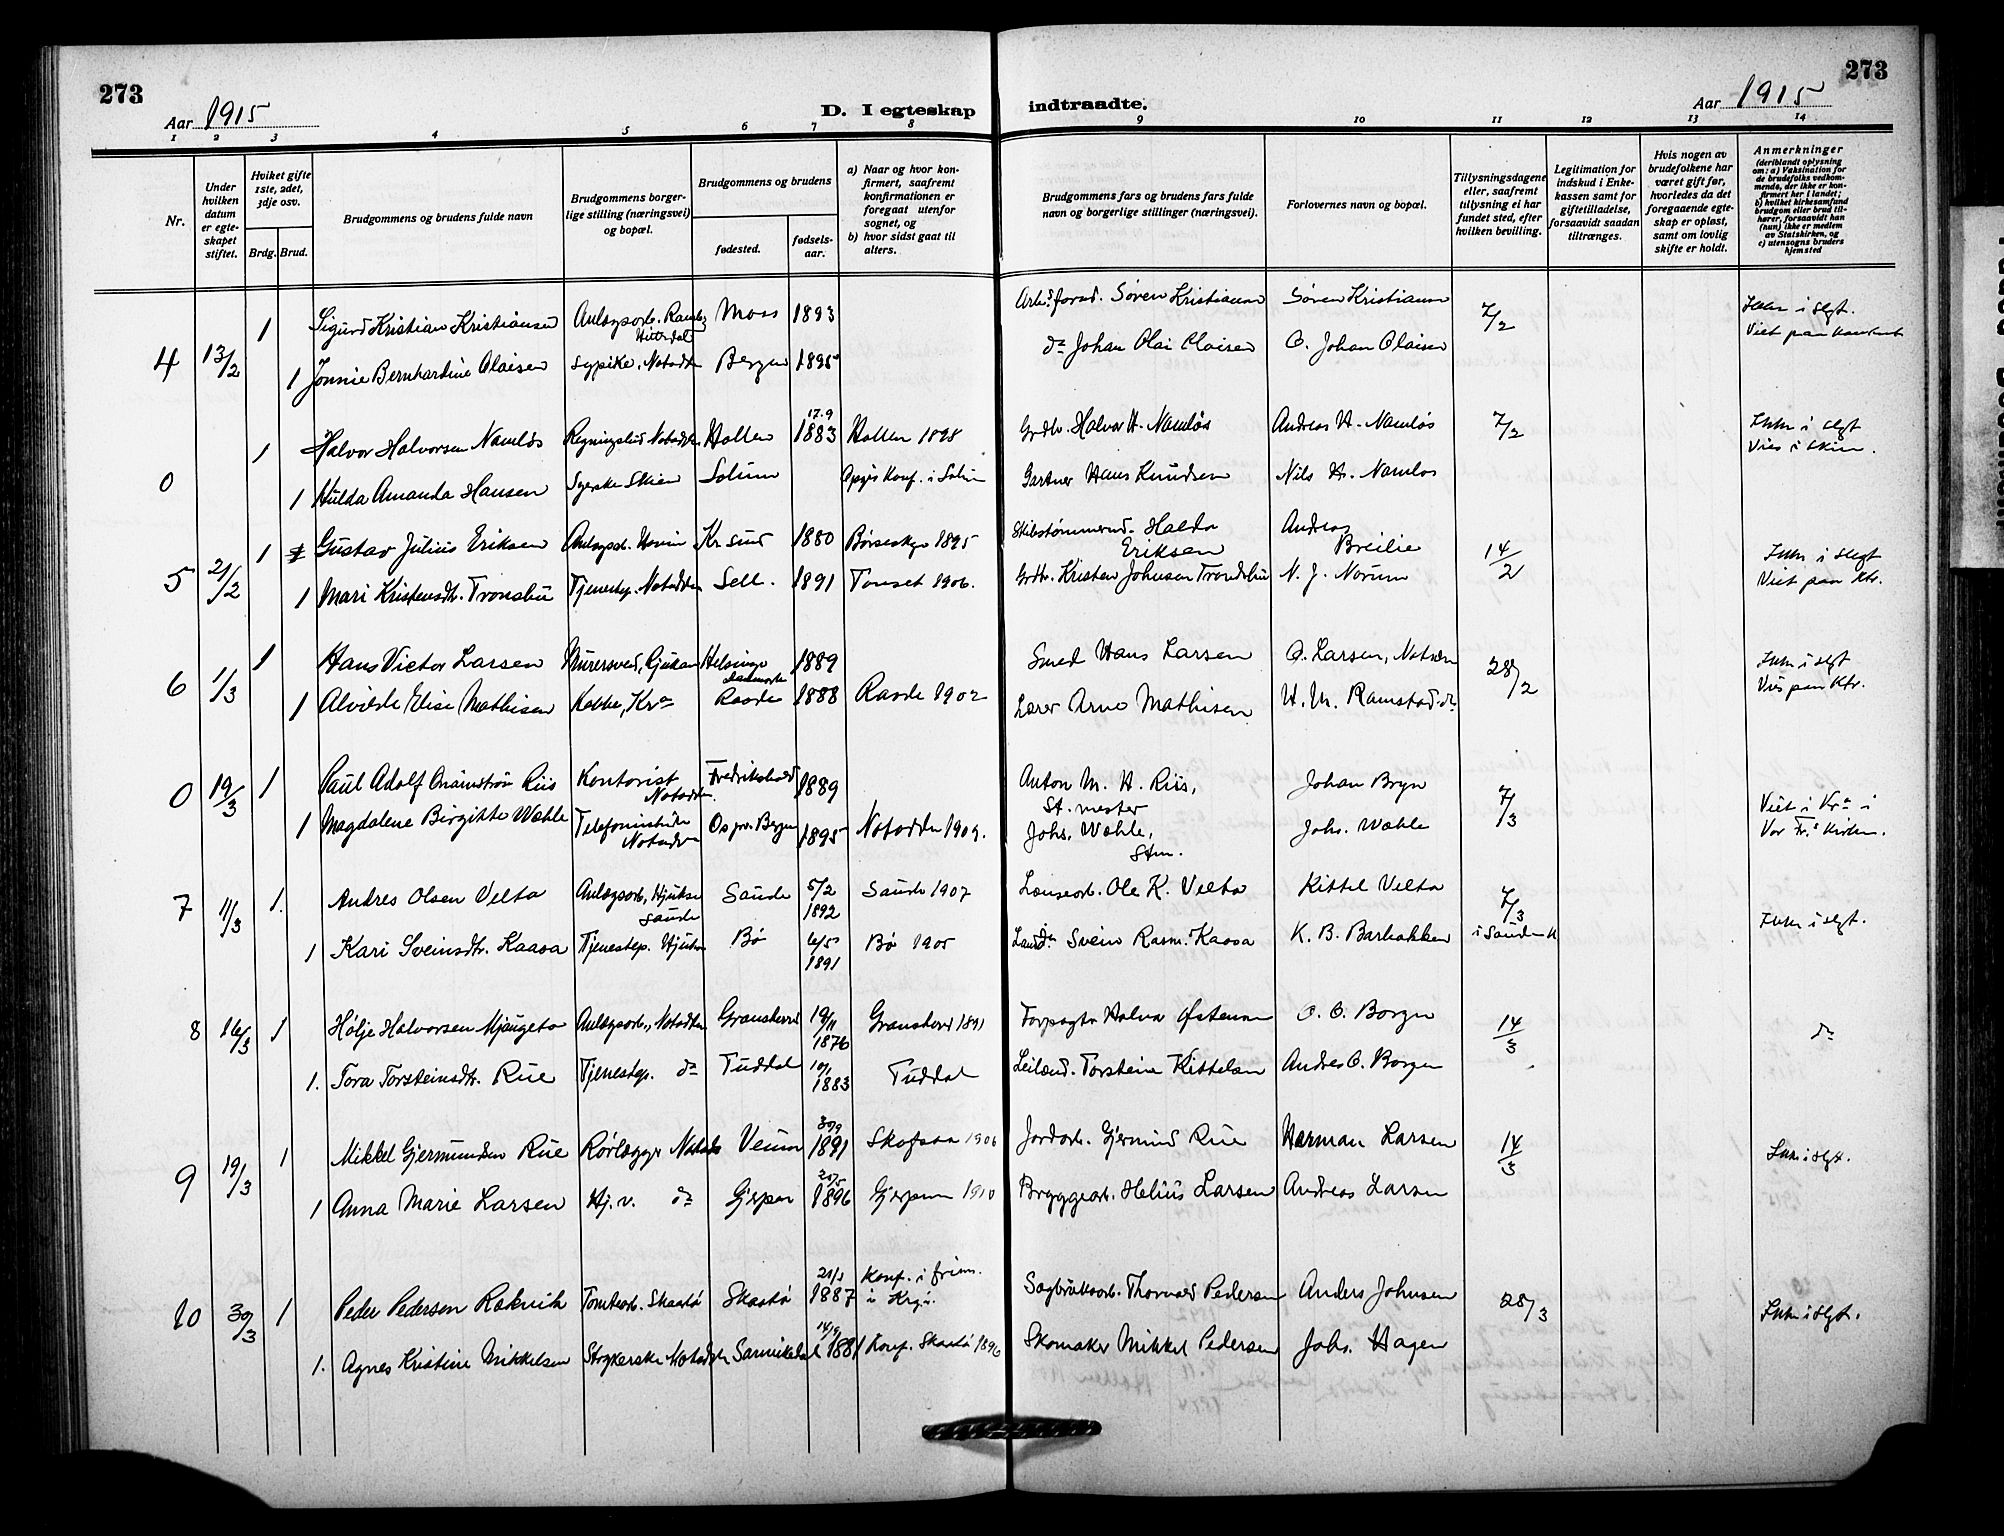 273
273
Aar 1915
D. I egteskap
indtraadte.
Aar 1915
1 2 3 4 5 6 7 8 9 10 11 12 13 14
Nr.
Under hvilken datum er egteskapet stiftet.
Hviket gifte 1ste, 2det, 3dje osv.
Brdg. Brud.
Brudgommens og brudens fulde navn
Brudgommens borgerlige stilling (næringsvei) og bopæl.
Brudgommens og brudens
fødested.
fødselsaar.
a) Naar og hvor konfirmert, saafremt konfirmationen er foregaat utenfor sognet, og
b) hvor sidst gaat til alters.
Brudgommens fars og brudens fars fulde navn og borgerlige stillinger (næringsvei).
Forlovernes navn og bopæl.
Tillysningsdagene eller, saafremt tillysning ei har fundet sted, efter hvilken bevilling.
Legitimation for indskud i Enkekassen samt for giftetilladelse, forsaavidt saadan tiltrænges.
Hvis nogen av brudefolkene har været gift før, hvorledes da det foregaaende egteskap er opløst, samt om lovlig skifte er holdt.
Anmerkninger
(deriblandt oplysning om: a) Vaksination for de brudefolks vedkommende, der ikke er konfirmert her i landet; b) hvilket kirkesamfund brudgom eller brud tilhører, forsaavidt han (hun) ikke er medlem av Statskirken, og c) utensogns bruders hjemsted
4 13/2 1 Sigurd Kristian Kristiansen Moss 1893 Søren Kristiansen Søren Kristiansen 7/2
1 Jonnie Bernhardine Olaisen Sypike, Notodden Bergen 1895 do Johan Olai Olaisen O. Johan Olaisen
0 1 Halvor Halvorsen Namløs Notodden Hollen 17.9 1883 Hollen 1898 Grdbr. Halvor H. Namløs Andreas H. Namløs 7/2 i slegt
1 Hulda Amanda Hansen Syerske Skien Solum Konf. i Solum Gartner Hans Knudsen Nils H. Namløs Vies i Skien.
5 21/2 1 Gustav Julius Eriksen Kr sund 1880 1895 Halda Eriksen Andreas Breilie 14/2 i slegt
1 Mari Kristensdtr. Tronsbu Tjenestep. Notodden Sell. 1891 Tonset 1906. Grdbr. Kristen Johnsen N. J. Norum Viet paa Ktr.
6 1/3 1 Hans Victor Larsen Murersvend, Rjukan Helsingør Danmark 1889 Smed Hans Larsen O. Larsen, Notodden 28/2 i slegt
1 Alvilde Elise Mathisen Kokke, Kra Raade 1888 Raade 1902 Lærer Arne Mathisen H. M. Ramstad do Vies paa Ktr.
0 19/3 1 Paul Adolf Riis Kontorist Notodden. Fredrikshald 1889 Anton M. H. Riis, St. mester Johan Bryn 7/3 Viet i Kra i
1 Magdalene Birgitte Wæhle Telefonistinde Notodden Bergen 1895 Notodden 1909. Johs. Wæhle, Stm. Johs. Wæhle Vor Fr.s kirken.
7 11/3 1. Andres Olsen Velta Anlægsarb., Hjuksa Saude Saude 5/2 1892 Saude 1907 Ole K. Velta Kittel Velta 7/3
1 Kari Sveinsdtr. Kaasa Tjenestep. Hjuksa Bø 6/5 1891 Bø 1905 Svein Rasm. Kaasa K. B. Barbakken i Saude i slegt.
8 16/3 1 Hølje Halvorsen Mjaugeto Anlægsarb., Notodden Gransherred 19/11 1876 Gransherred 1891 Halvor Østensen O. O. Borgen 14/3 do
1. Tora Torsteinsdtr. Rue Tjenestep. do Tuddal 1883 Tuddal Leilænd. Torstein Kittelsen Andres O. Borgen
9 19/3 1 Mikkel Gjermundsen Rue Rørlægger Notodden Veum 30/9 1891 Skafsaa 1906 Jordarb. Gjermund Rue Herman Larsen 14/3 i slegt.
1 Anna Marie Larsen Hj. v. do Gjerpen 1896 Gjerpen 1910 Bryggearb. Helius Larsen Andreas Larsen
10 30/3 1 Peder Pedersen Rakvik Tomtearb. Skaatø Skaatø 1887 Konf. i frim. i Krgø. Sagbruksarb. Thorvald Pedersen Anders Johnsen 28/3 i slegt.
1. Agnes Kristine Mikkelsen Strykerske Notodden Sannikedal 1881 Konf. Skaatø 1896 Skomaker Mikkel Pedersen Johs. Hagen